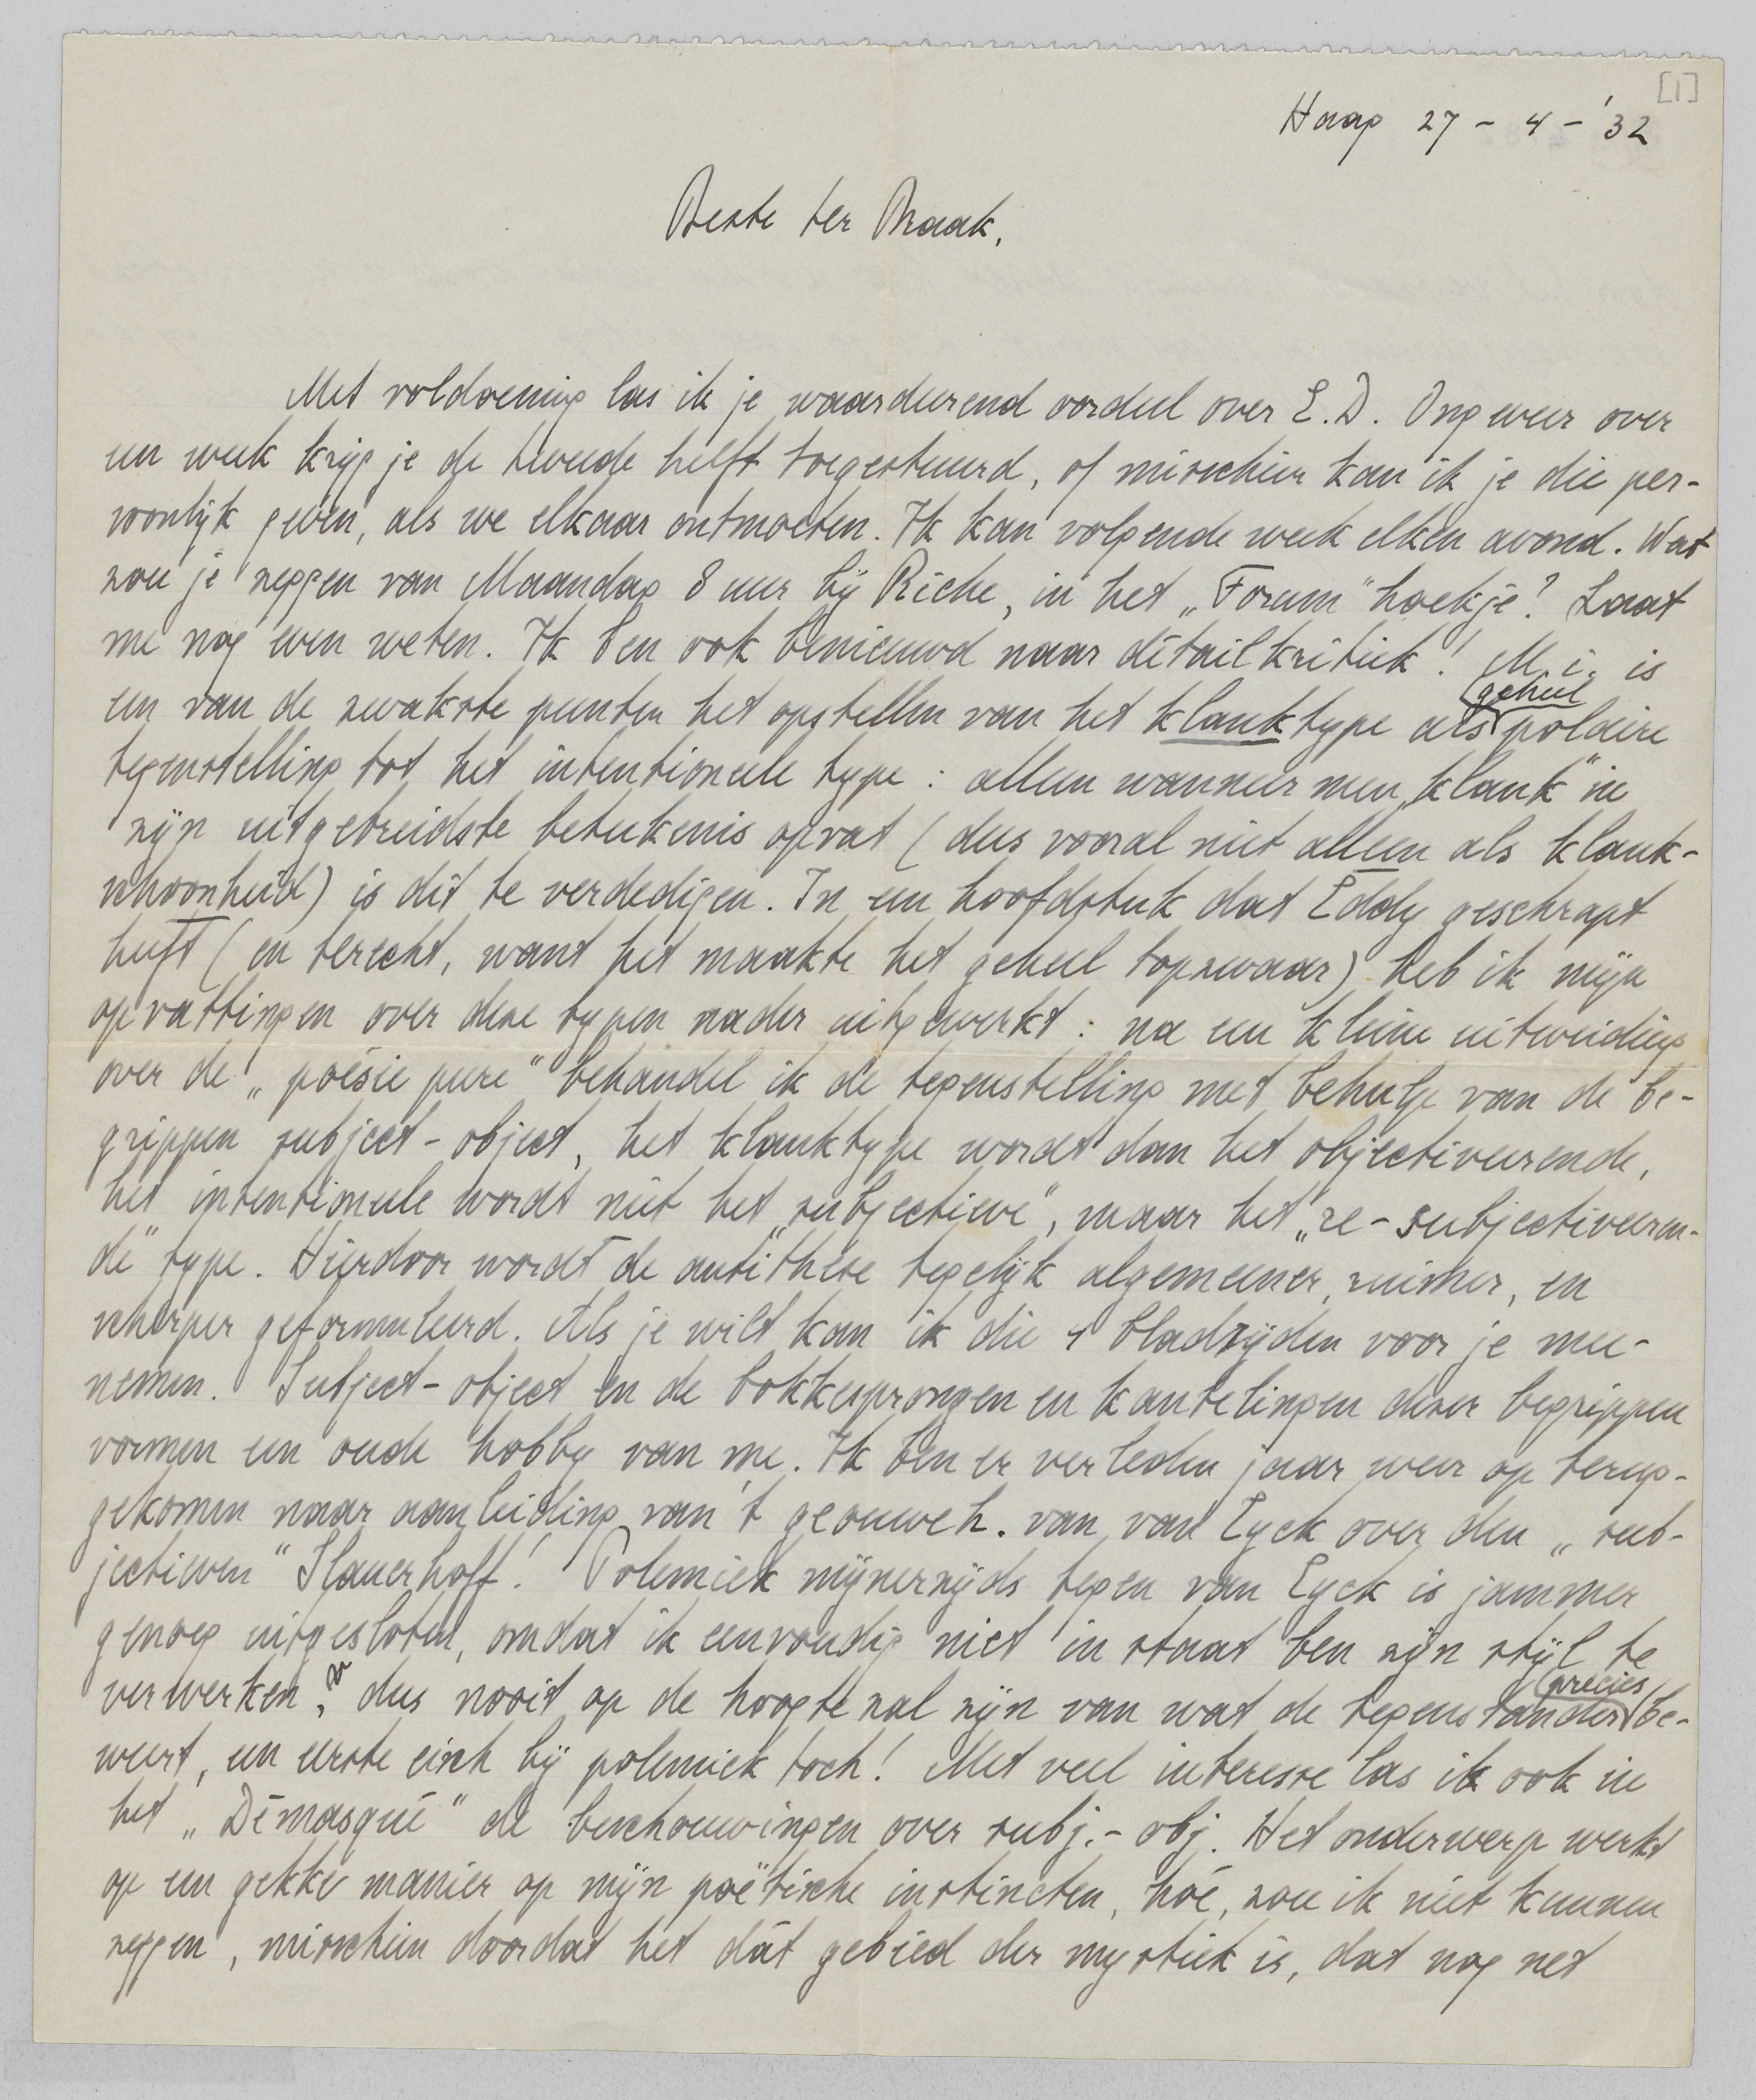 [1]
Haag 27 - 4 - '32
Beste ter Braak,
Met voldoening las ik je waardeerend oordeel over E.D. Ongeveer over
een week krijg je de tweede helft toegestuurd, of misschien kan ik je die per-
soonlijk geven, als we elkaar ontmoeten. Ik kan volgende week elken avond. Wat
zou je zeggen van Maandag 8 uur bij Riche, in het „Forum" hoekje? Laat
me nog even weten. Ik ben ook benieuwd naar détailkritiek! M.i. is
een van de zwakste punten het opstellen van het klanktype als geheel polaire
tegenstelling tot het intentioneele type: alleen wanneer men „klank" in
zijn uitgebreidste beteekenis opvat (dus vooral niet alleen als klank-
schoonheid) is dit te verdedigen. In een hoofdstuk dat Eddy geschrapt
heeft (en terecht, want het maakte het geheel topzwaar) heb ik mijn
opvattingen over deze typen nader uitgewerkt: na een kleine uitweiding
over de „poésie pure" behandel ik de tegenstelling met behulp van de be-
grippen subject-object, het klanktype wordt dan het objectiveerende,
het intentioneele wordt niet het „subjectieve", maar het „re-subjectiveeren-
de" type. Hierdoor wordt de antithese tegelijk algemeener, ruimer, en
scherper geformuleerd. Als je wilt kan ik die 4 bladzijden voor je mee-
nemen. Subject-object en de bokkesprongen en kantelingen dezer begrippen
vormen een oude hobby van me. Ik ben er verleden jaar weer op terug-
gekomen naar aanleiding van 't geouweh. van van Eyck over den „sub-
jectieven" Slauerhoff! Polemiek mijnerzijds tegen van Eyck is jammer
genoeg uitgesloten, omdat ik eenvoudig niet in staat ben zijn stijl te
verwerken, dus nooit op de hoogte zal zijn van wat de tegenstander precies be-
weert, een eerste eisch bij polemiek toch! Met veel interesse las ik ook in
het „Démasqué" de beschouwingen over subj.-obj. Het onderwerp werkt
op een gekke manier op mijn poëtische instincten, hoé, zou ik niet kunnen
zeggen, misschien doordat het dát gebied der mystiek is, dat nog net